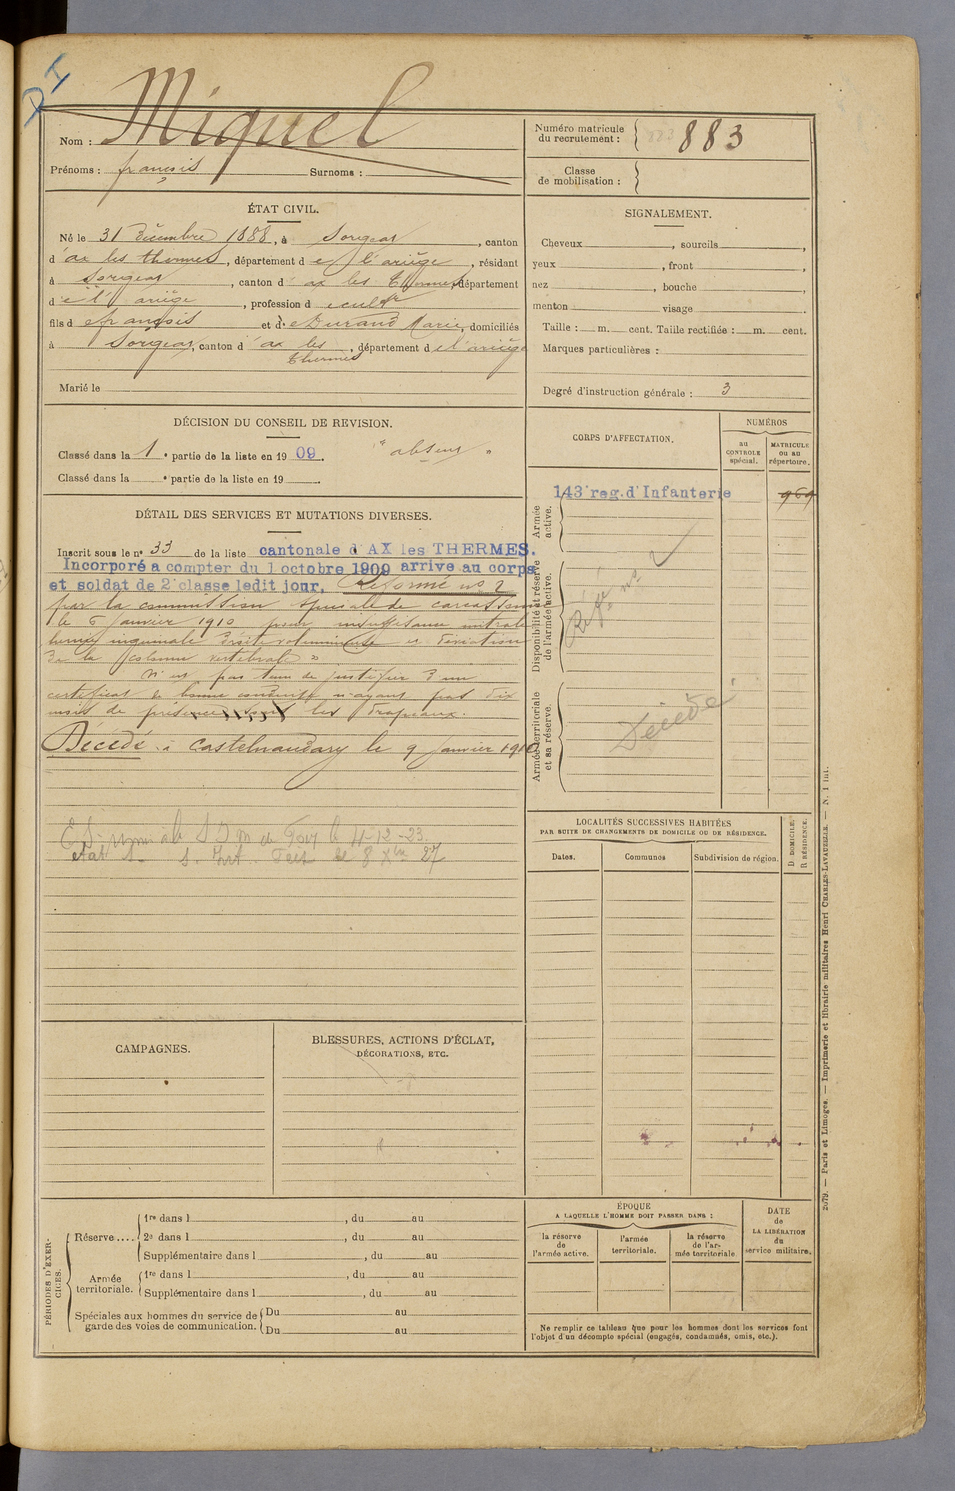 DI
Nom : Miquel
Prénoms : françois Surnoms :
Numéro matricule du recrutement : 883 883
Classe de mobilisation :
ÉTAT CIVIL.
Né le 31 Décembre 1888, à Sorgeat, canton
d'ax les thermes, département de l'ariège, résidant
à Sorgeat, canton d'ax les Thermes, département
de l'ariège, profession de cultr
fils de françois et de Durand Marie, domiciliés
à Sorgeat, canton d'ax les thermes, département de l'ariège
Marié le
SIGNALEMENT.
Cheveux , sourcils ,
yeux , front ,
nez , bouche ,
menton visage .
Taille : m. cent. Taille rectifiée : m. cent.
Marques particulières :
Degré d'instruction générale : 3
DÉCISION DU CONSEIL DE REVISION.
Classé dans la 1e partie de la liste en 1909. "absent"
Classé dans la e partie de la liste en 19 .
DÉTAIL DES SERVICES ET MUTATIONS DIVERSES.
Inscrit sous le no 33 de la liste cantonale d'AX les THERMES.
Incorporé a compter du 1 octobre 1909 arrive au corps
et soldat de 2e classe ledit jour. Réformé no 2
par la commission spéciale de carcassonne
le 6 janvier 1910 pour insuffisance mitrale
hernie inguinale droite volumineuse et déviation
de la colonne vertébrale »
N'est pas tenu de justifier d'un
certificat de bonne conduite n'ayant pas dix
mois de présence sous les drapeaux.
Décédé à Castelnaudary le 9 janvier 1910
le 11-12-23.
27
CORPS D'AFFECTATION.
NUMÉROS
au CONTROLE spécial.
MATRICULE ou au répertoire.
Armée active.
143e reg. d'Infanterie 969
Disponibilité et réserve de l'armée active.
Réfé no 2
Armée territoriale et sa réserve.
Décédé
LOCALITÉS SUCCESSIVES HABITÉES
PAR SUITE DE CHANGEMENTS DE DOMICILE OU DE RÉSIDENCE.
Dates. Communes Subdivision de région.
D. DOMICILE. R. RÉSIDENCE.
CAMPAGNES.
BLESSURES, ACTIONS D'ÉCLAT,
DÉCORATIONS, ETC.
PÉRIODES D'EXERCICES.
Réserve....
1re dans l , du au
2e dans l , du au
Supplémentaire dans l , du au
Armée territoriale.
1re dans l , du au
Supplémentaire dans l , du au
Spéciales aux hommes du service de garde des voies de communication.
Du au
Du au
ÉPOQUE
A LAQUELLE L'HOMME DOIT PASSER DANS :
la réserve de l'armée active.
l'armée territoriale.
la réserve de l'armée territoriale.
DATE de LA LIBÉRATION du service militaire.
Ne remplir ce tableau que pour les hommes dont les services font
l'objet d'un décompte spécial (engagés, condamnés, omis, etc.).
2079. — Paris et Limoges. — Imprimerie et librairie militaires Henri CHARLES-LAVAUZELLE. — N. 1 int.